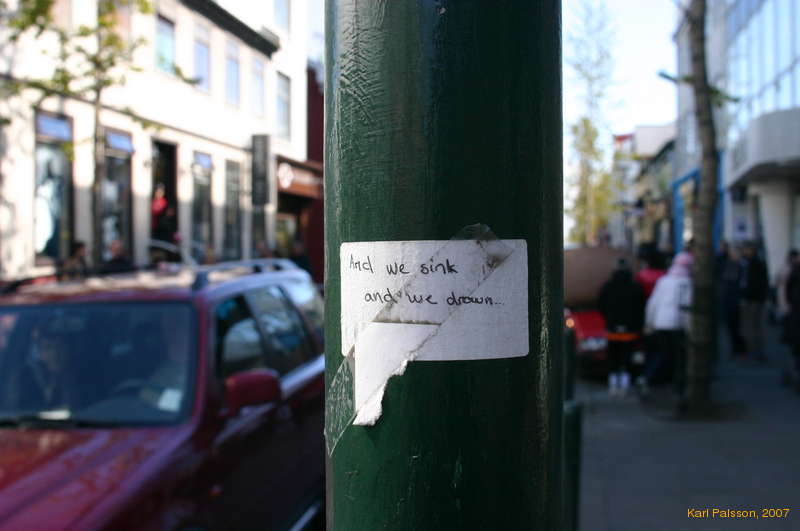 And we sink
and we drown...
Karl Palsson, 2007